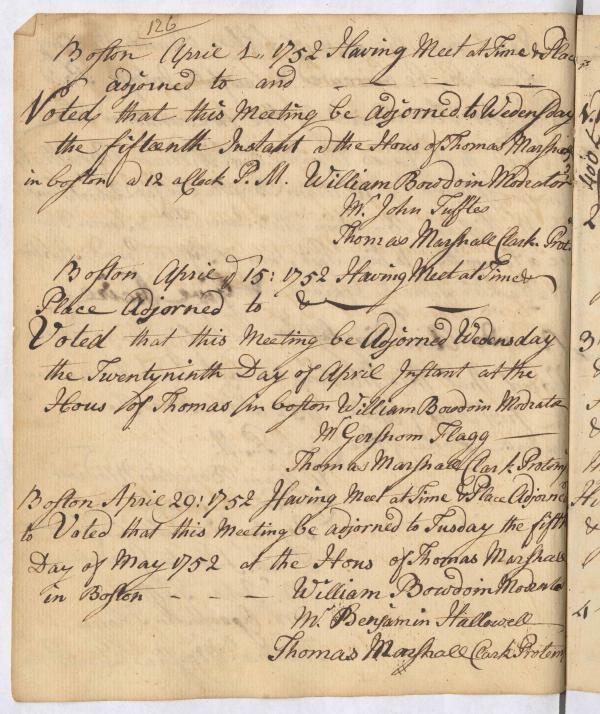 126
Boston April 1,, 1752 Having Meet at Time & Place
adjorned to and
Voted that this Meeting be adjorned to Wedensday
the fifteenth Instant a the Hous of Thomas Marshall
in boston a 12 aClock P.M. William Bowdoin Moderator
Mr. John Tuffles
Thomas Marshall Clark. Prot.
Boston April 15: 1752 Having Meet at Time &
Place Adjorned to &
Voted that this Meeting be Adjorned Wedensday
the Twentyninth Day of April Instant at the
Hous of Thomas in boston William Bowdoin Modrate
Mr Gershom Flagg
Thomas Marshall Clark Protem
Boston April 29: 1752 Having Meet at Time & Place Adjorned
to Voted that this Meeting be adjorned to Tusday the fifth
Day of May 1752 at the Hous of Thomas Marshall
in Boston - - - - William Bowdoin Moderato
Mr. Benjamin Hallowell
Thomas Marshall Clark Protem